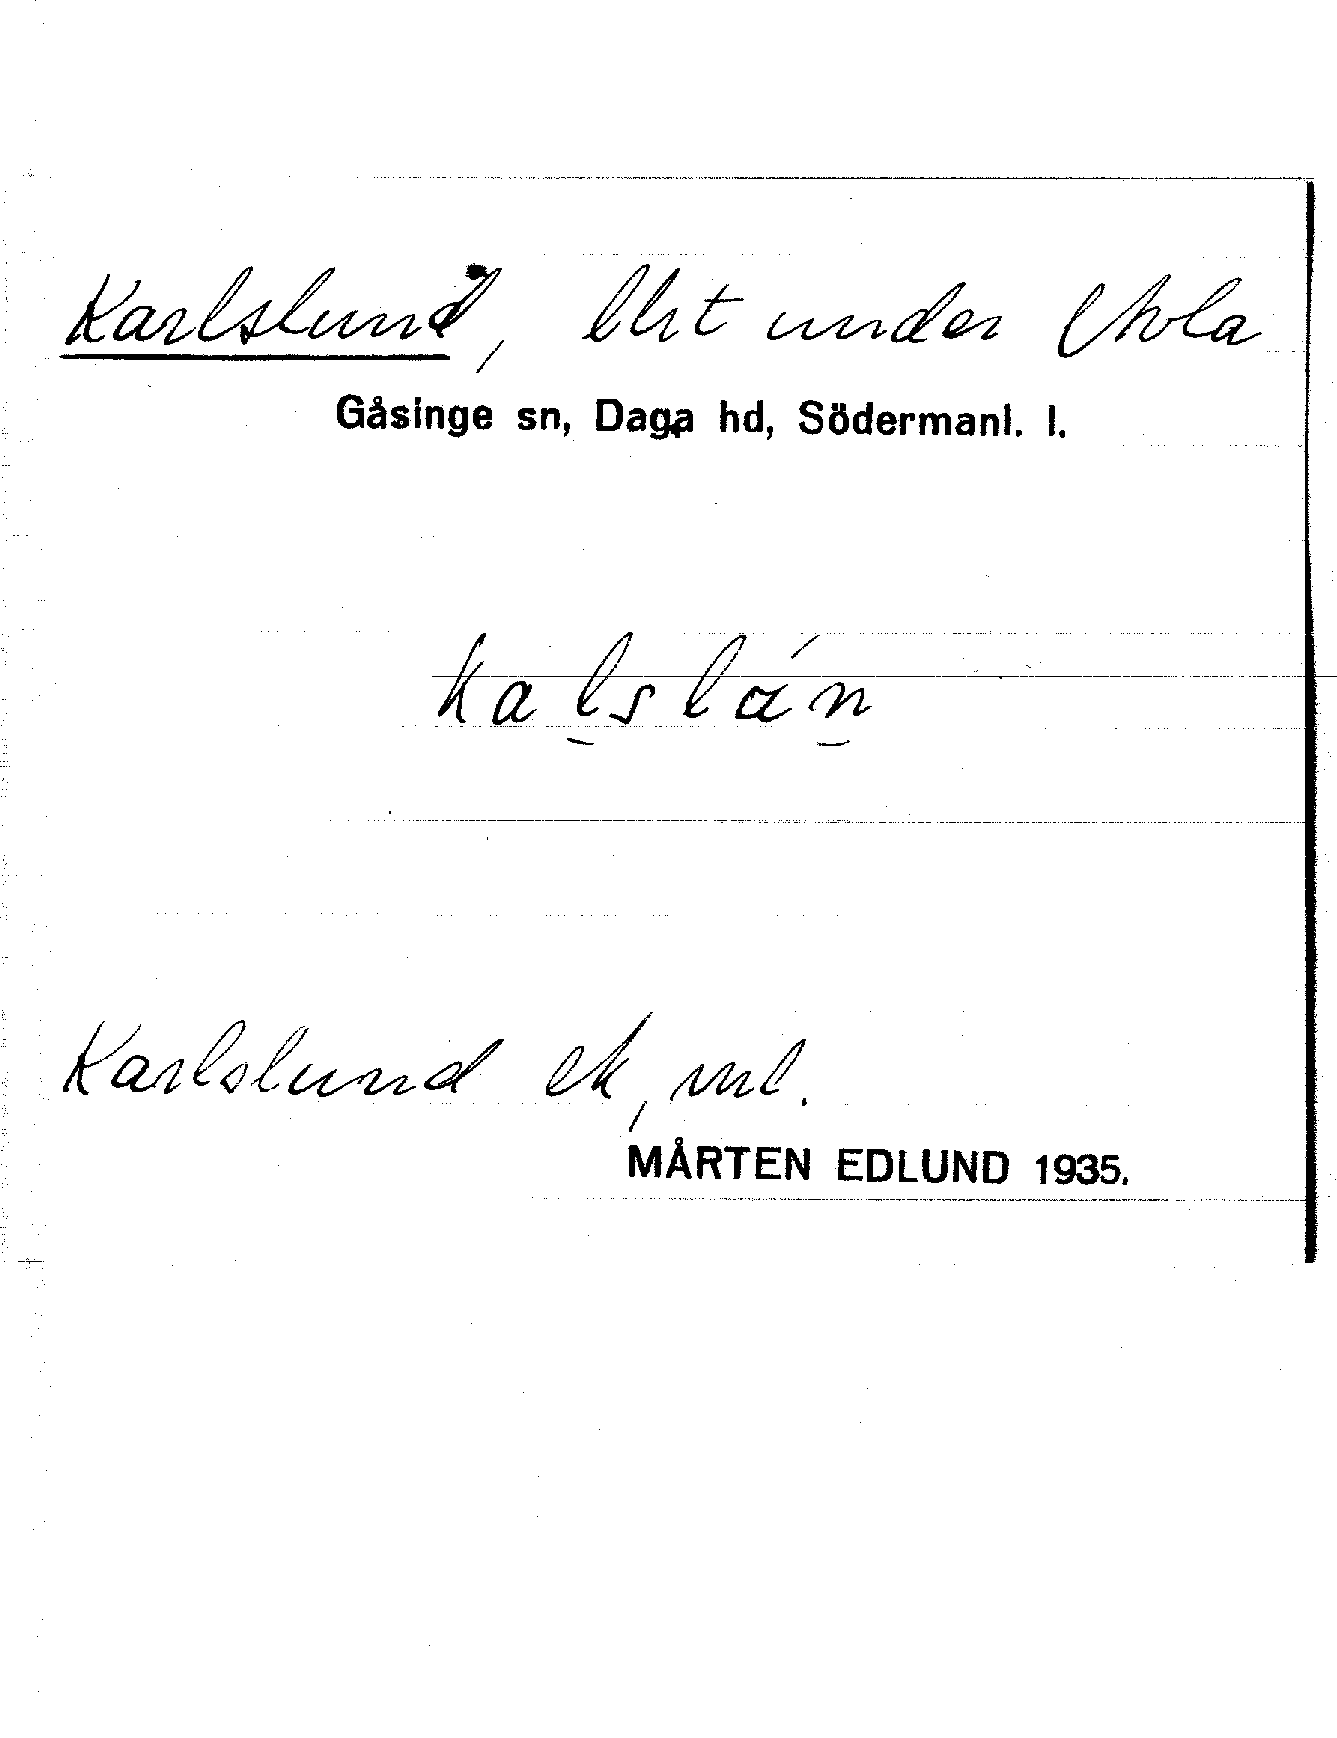 Karlslund, lht under Vola
Gåsinge sn, Daga hd, Södermanl. l.
ka l̠slán̠
Karlslund ek, ml.
MÅRTEN EDLUND 1935.